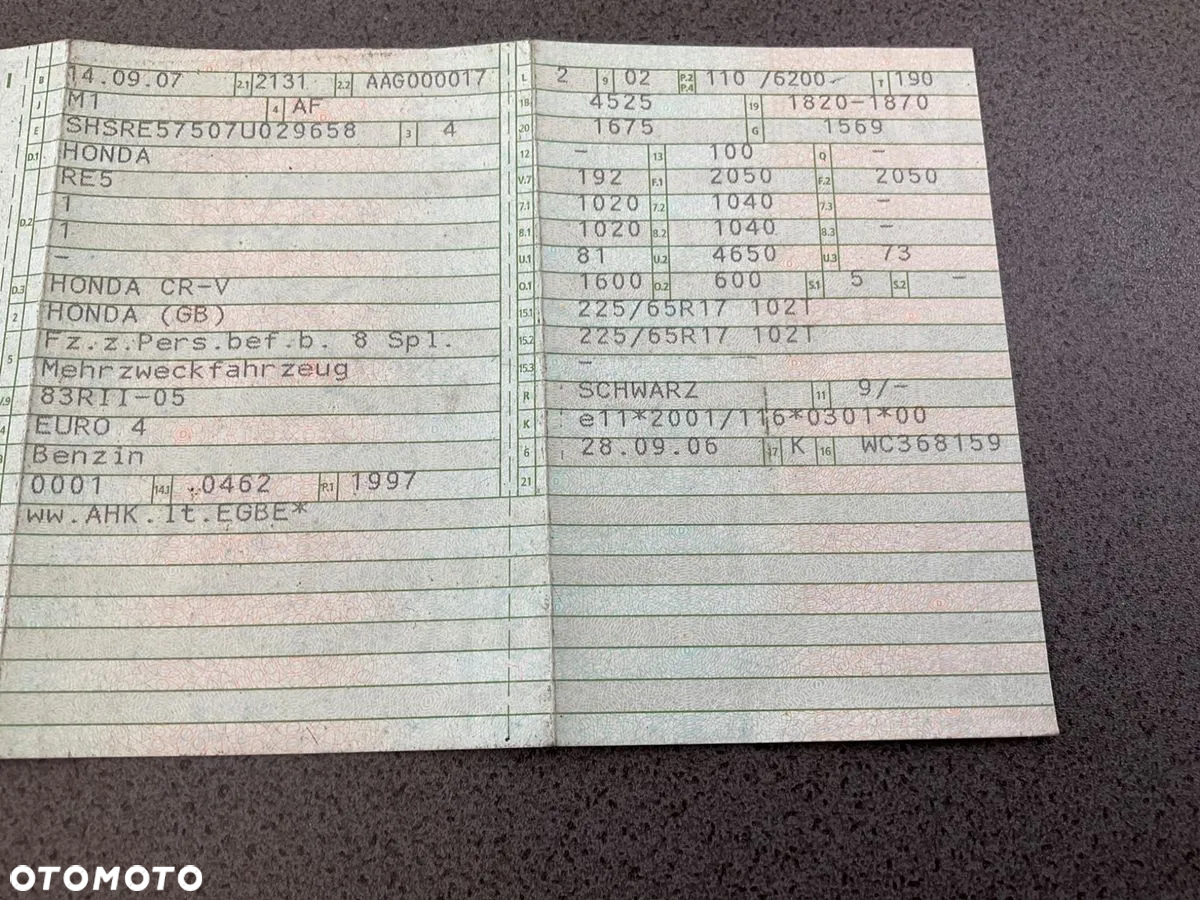 B 14.09.07 2.1 2131 2.2 AAG000017
J M1 4 AF
E SHSRE57507U029658 3 4
D.1 HONDA
RE5
D.2 1
1
–
D.3 HONDA CR-V
2 HONDA (GB)
Fz.z.Pers.bef.b. 8 Spl.
5 Mehrzweckfahrzeug
V.9 83RII-05
EURO 4
Benzin
0001 14.1 0462 P.1 1997
ww.AHK.lt.EGBE*
L 2 9 02 P.2 P.4 110 /6200 T 190
18 4525 19 1820-1870
20 1675 G 1569
12 – 13 100 Q –
V.7 192 F.1 2050 F.2 2050
7.1 1020 7.2 1040 7.3 –
8.1 1020 8.2 1040 8.3 –
U.1 81 U.2 4650 U.3 73
O.1 1600 O.2 600 S.1 5 S.2 –
15.1 225/65R17 102T
15.2 225/65R17 102T
15.3 –
R SCHWARZ 11 9/-
K e11*2001/116*0301*00
6 28.09.06 17 K 16 WC368159
21
OTOMOTO